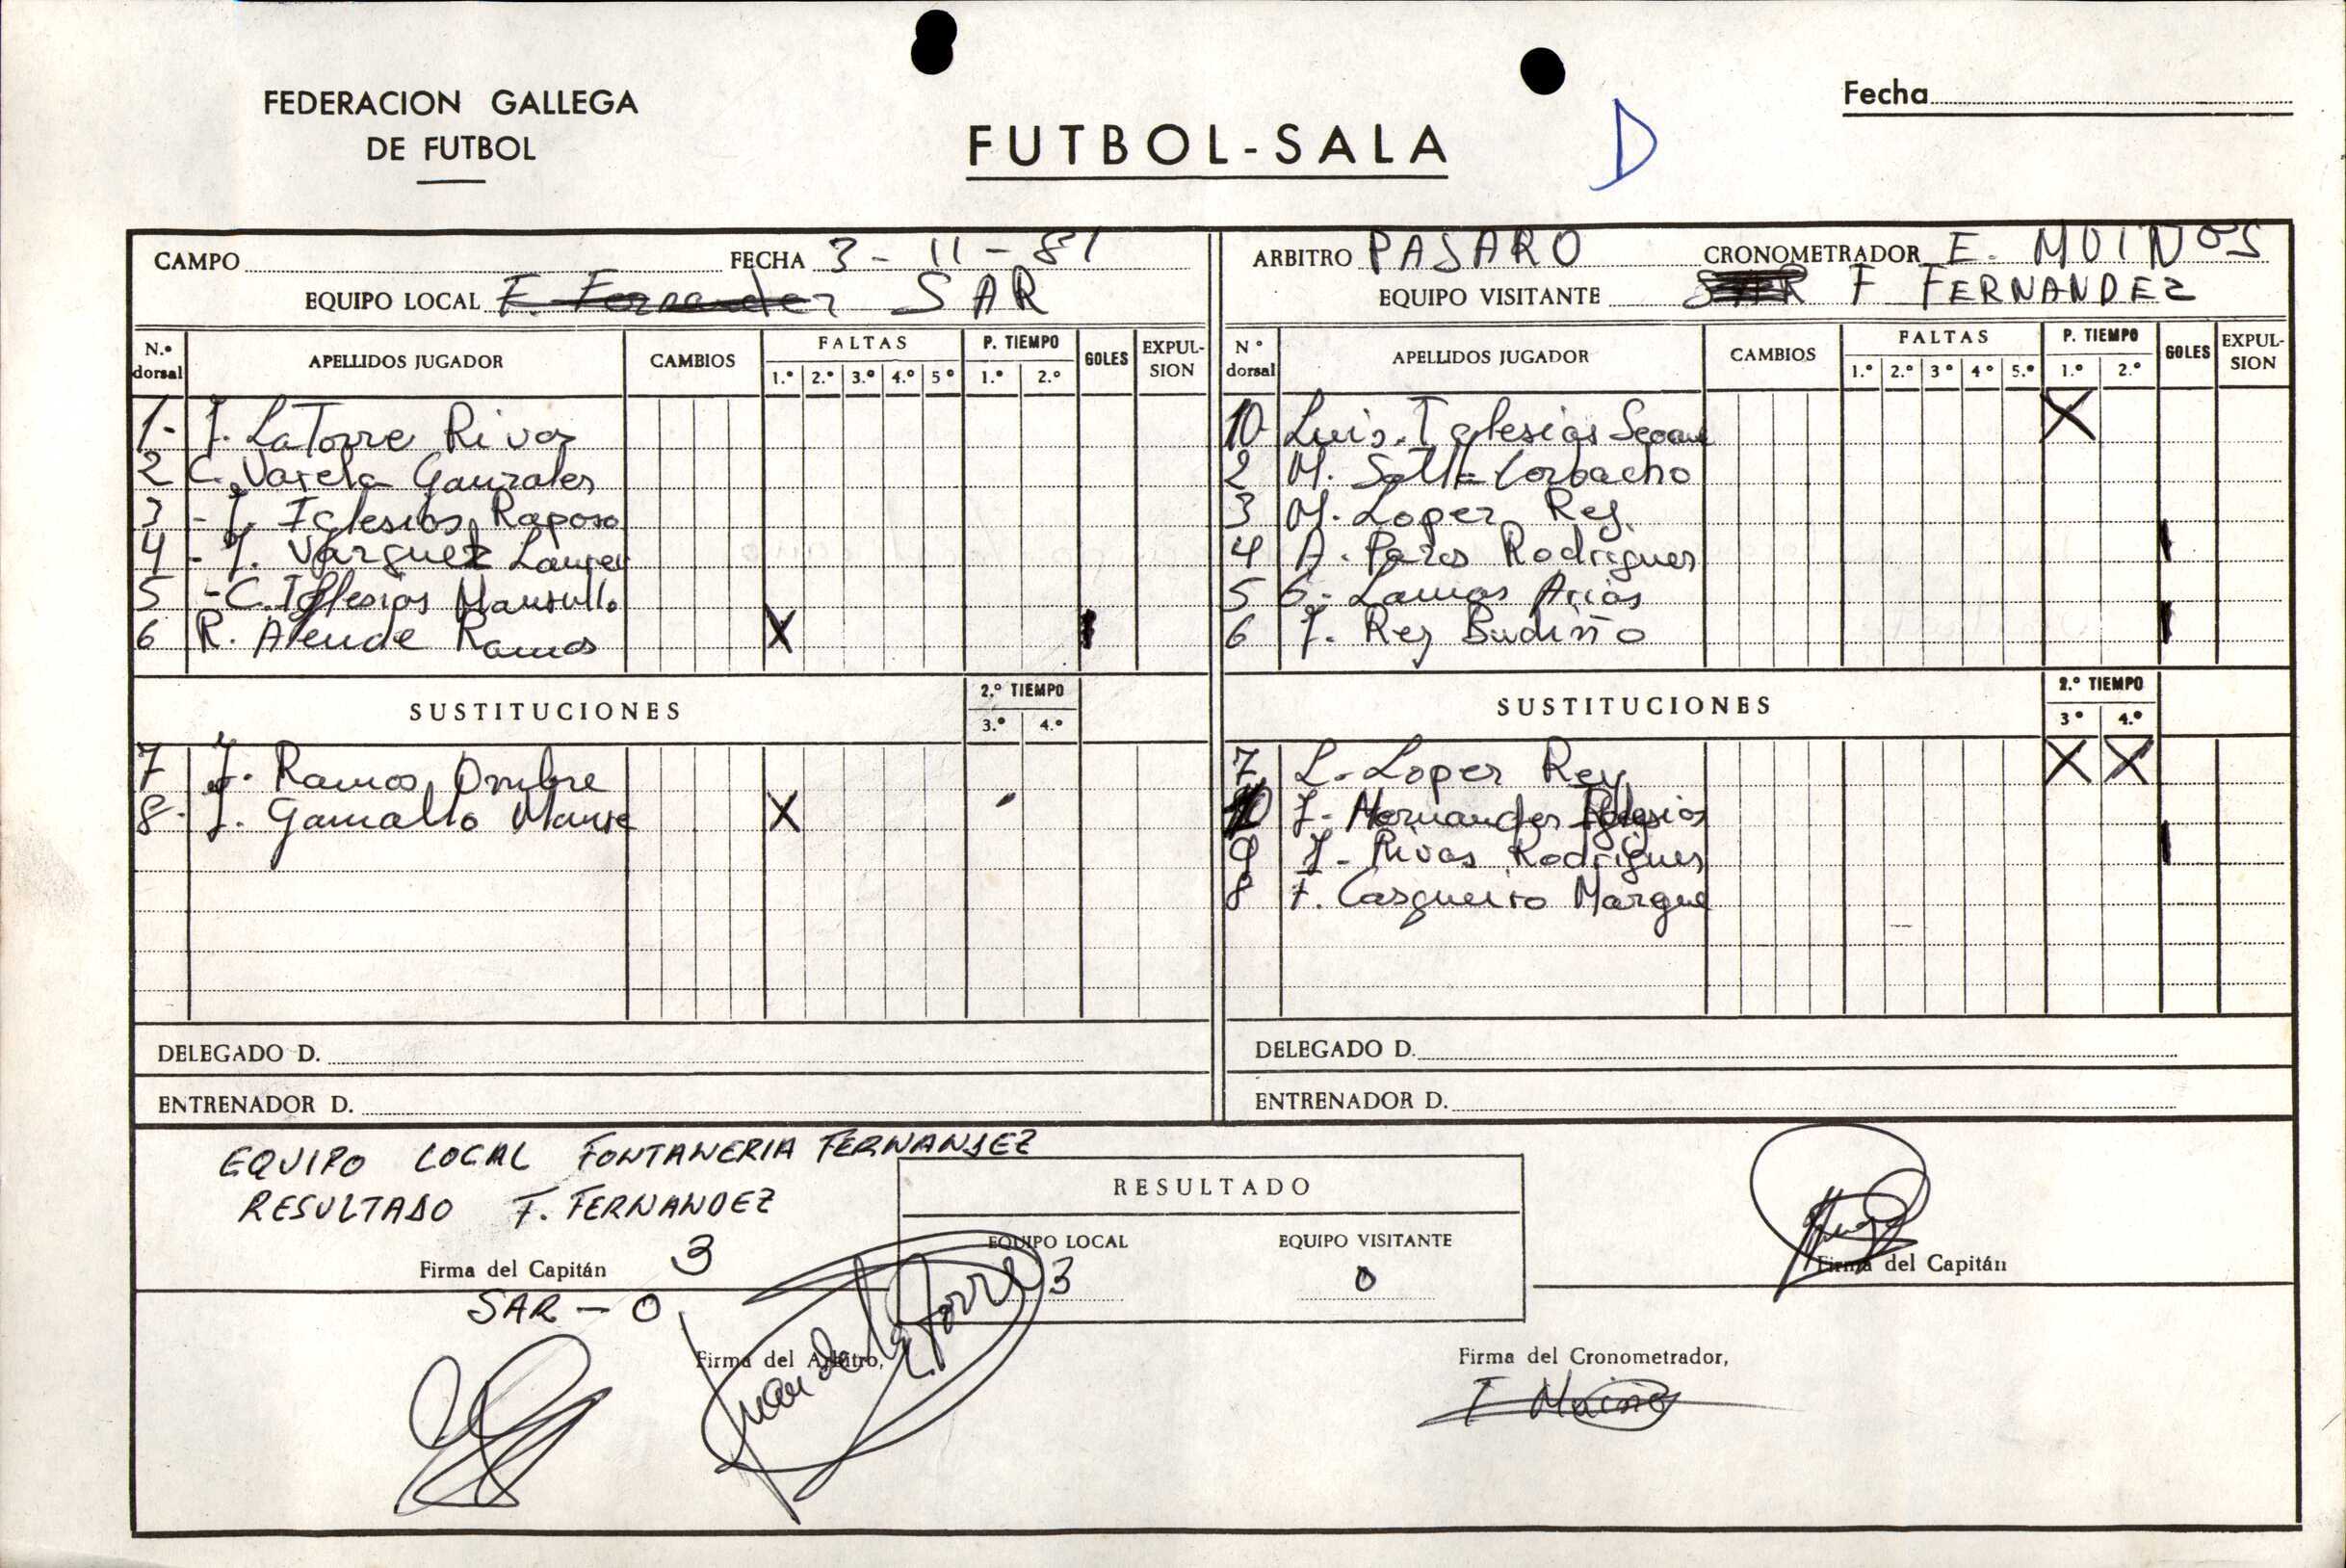 FEDERACION GALLEGA
DE FUTBOL
FUTBOL-SALA
D
Fecha
CAMPO FECHA 3-11-81
EQUIPO LOCAL F. Fernandez SAR
ARBITRO PASARO CRONOMETRADOR E. MUIÑOS
EQUIPO VISITANTE SAR F FERNANDEZ
N.º dorsal APELLIDOS JUGADOR CAMBIOS FALTAS 1.º 2.º 3.º 4.º 5º P. TIEMPO 1.º 2.º GOLES EXPULSION
1- J. LaTorre Rivas
2 C. Varela Gonzales
3 - J. Iglesias Raposo
4 - J. Vazquez
5 - C. Iglesias
6 R. Atende Ramos X
SUSTITUCIONES 2.º TIEMPO 3.º 4.º
7 J. Ramos Ombre
8- J. Gamallo X
N º dorsal APELLIDOS JUGADOR CAMBIOS FALTAS 1.º 2.º 3º 4º 5.º P. TIEMPO 1.º 2.º GOLES EXPULSION
10 Luis Iglesias Seoane X
2 M. Corbacho
3 M. Lopez Rey
4 A. Pazos Rodriguez
5 G. Lamas Arias
6 J. Rey Budiño
SUSTITUCIONES 2.º TIEMPO 3º 4.º
7 L. Lopez Rey X X
10 J. Hernandez Iglesias
9 J. Rivas Rodriguez
8 F. Casqueiro Marque
DELEGADO D.
ENTRENADOR D.
DELEGADO D.
ENTRENADOR D.
EQUIPO LOCAL FONTANERIA FERNANDEZ
RESULTADO F. FERNANDEZ
3
Firma del Capitán
SAR - 0
RESULTADO
EQUIPO LOCAL EQUIPO VISITANTE
3 0
Firma del Capitán
Firma del Arbitro,
Juan de la Torre
Firma del Cronometrador,